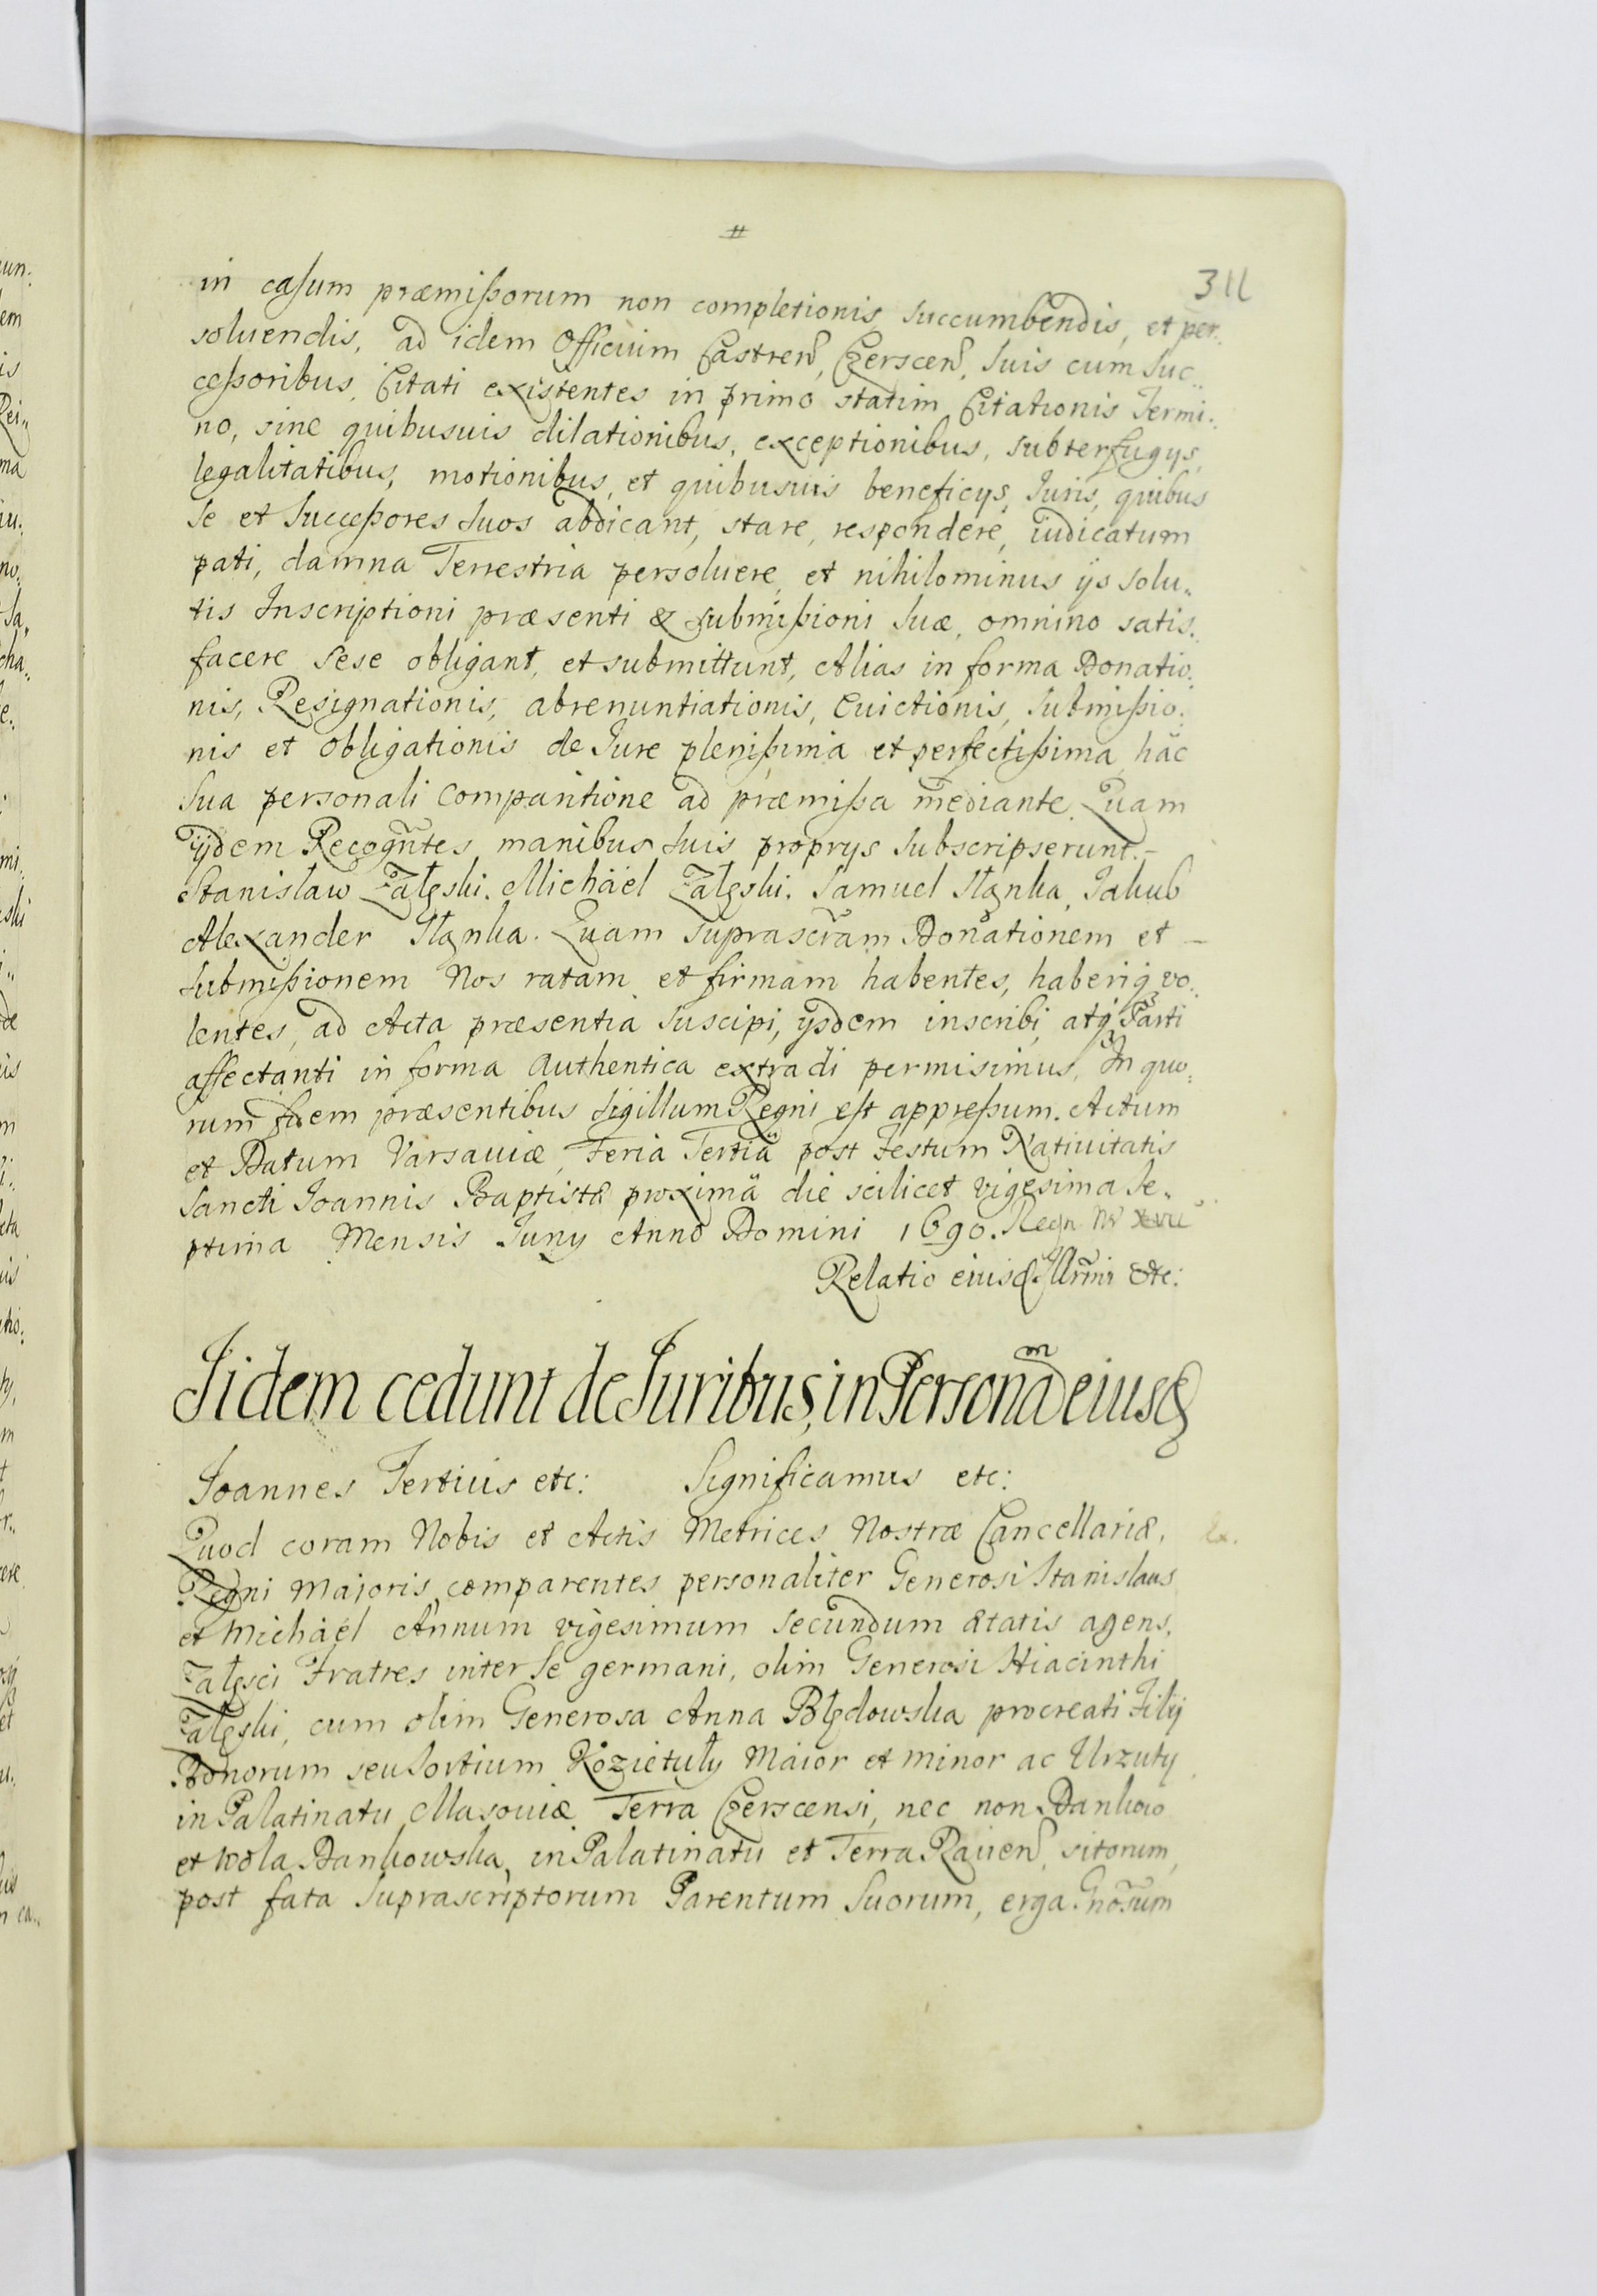 #
311
in casum præmissorum non completionis succumbendis, et per„
soluendis, ad idem Officium Castren, Czerscen, suis cum Suc„
cessoribus, Citati existentes in primo statim Citationis Termi„
no, sine quibusuis dilationibus, exceptionibus, subterfugys,
legalitatibus, motionibus, et quibusuis beneficys, Juris, quibus
se et Successores suos abdicant, stare, respondere, iudicatum
pati, damna Terrestria persoluere, et nihilominus ijs solu„
tis Inscriptioni præsenti & submissioni suæ, omnino satis„
facere sese obligant, et submittunt, Alias in forma Donatio„
nis, Resignationis, abrenuntiationis, Euictionis, Submissio„
nis et Obligationis de Jure plenissima et perfectissima, hac
sua personali comparitione ad præmissa mediante. Quam
ijdem Recogntes manibus suis proprys subscripserunt.—
Stanisław Załęski. Michael Załęski. Samuel Słanka, Jakub
Alexander Słanka. Quam suprascram Donationem et —
submissionem Nos ratam et firmam habentes, haberiq vo„
lentes, ad Acta præsentia suscipi, ijsdem inscribi, atq Parti
affectanti in forma authentica extradi permisimus. In quo„
rum fidem præsentibus Sigillum Regni est appressum. Actum
et Datum Varsauiæ, Feria Tertia post Festum Natiuitatis
Sancti Joannis Baptistæ proxima die scilicet vigesima Se„
ptima Mensis Juny Anno Domini 1690. Regn. Nr XVII
Relatio eiusd Illrmi etc:
Iidem cedunt de Juribus, in Personam eiusd
Joannes Tertius etc: Significamus etc:
Quod coram Nobis et Actis Metrices Nostræ Cancellariæ,
Regni Maioris, comparentes personaliter Generosi Stanislaus
et Michael Annum vigesimum secundum ætatis agens,
Załęsci Fratres inter se germani, olim Generosi Hiacinthi
Załęski, cum olim Generosa Anna Błędowska procreati Filij
Bonorum seu Sortium Kozietuły Maior et minor ac Urzuty
in Palatinatu Masouiæ Terra Czerscensi, nec non Dankow
et Wola Dankowska in Palatinatu et Terra Rauen, sitorum,
post fata suprascriptorum Parentum suorum, erga Gnosum